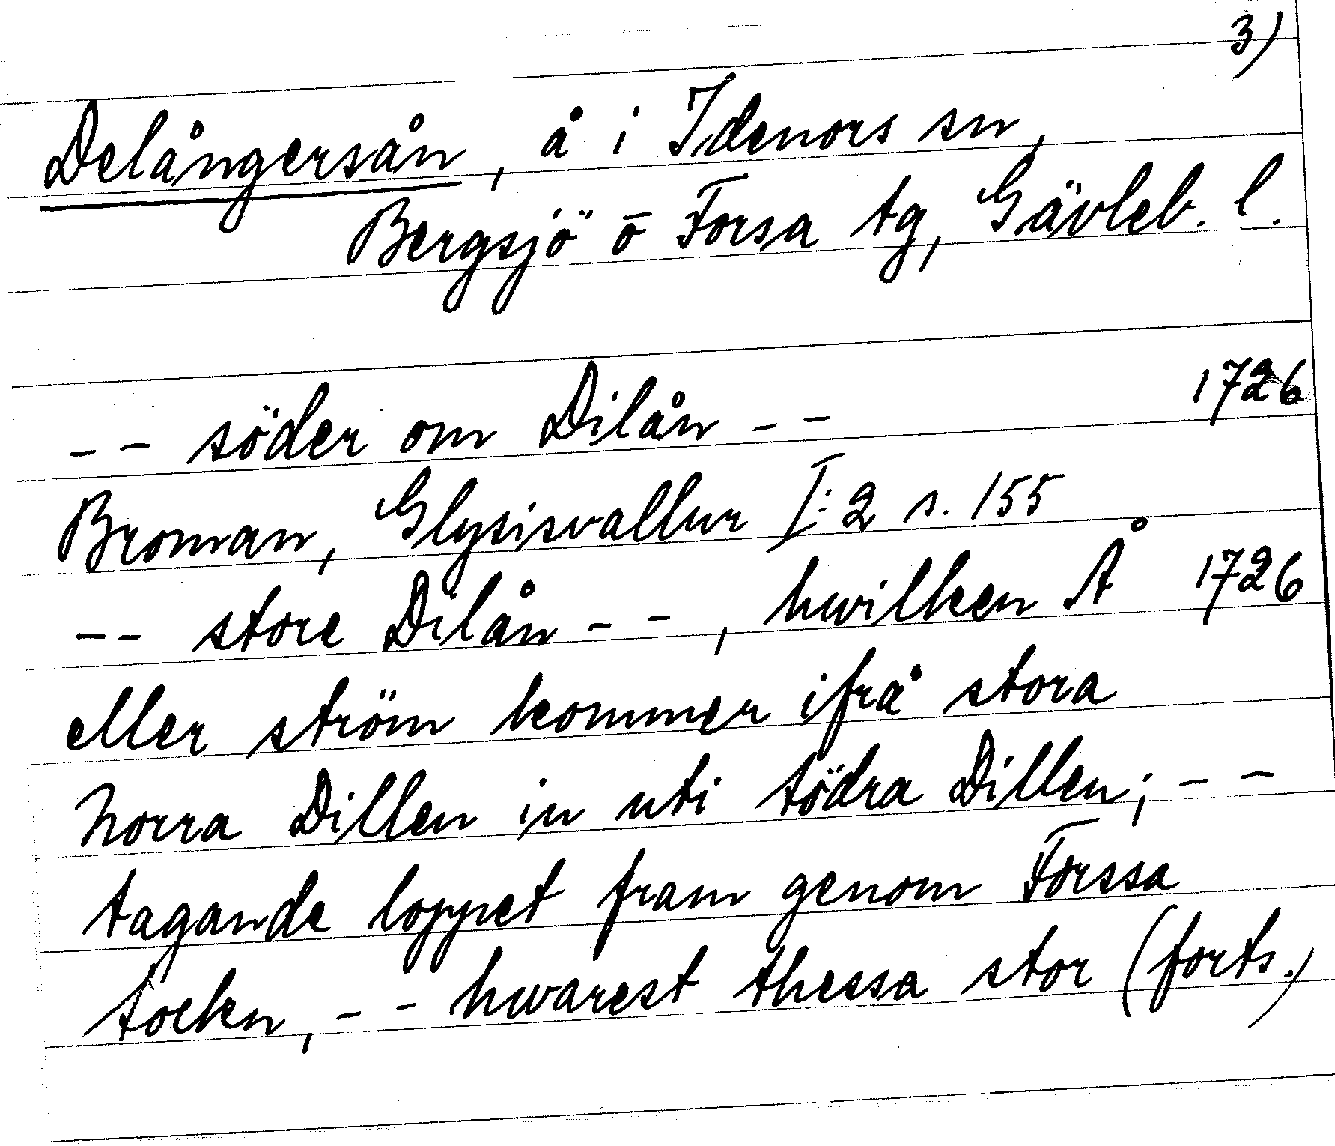 3)
Delångersån, å i Idenors sn,
Bergsjö ō Forsa tg, Gävleb. l.
-- söder om Dilån -- 1726
Broman, Glysisvallur I:2 s. 155
-- store Dilån --, hwilken Å 1726
eller ström kommer ifrå stora
Norra Dillen in uti södra Dillen; --
tagande loppet fram genom Forssa
socken, -- hwarest thessa stor (forts.)